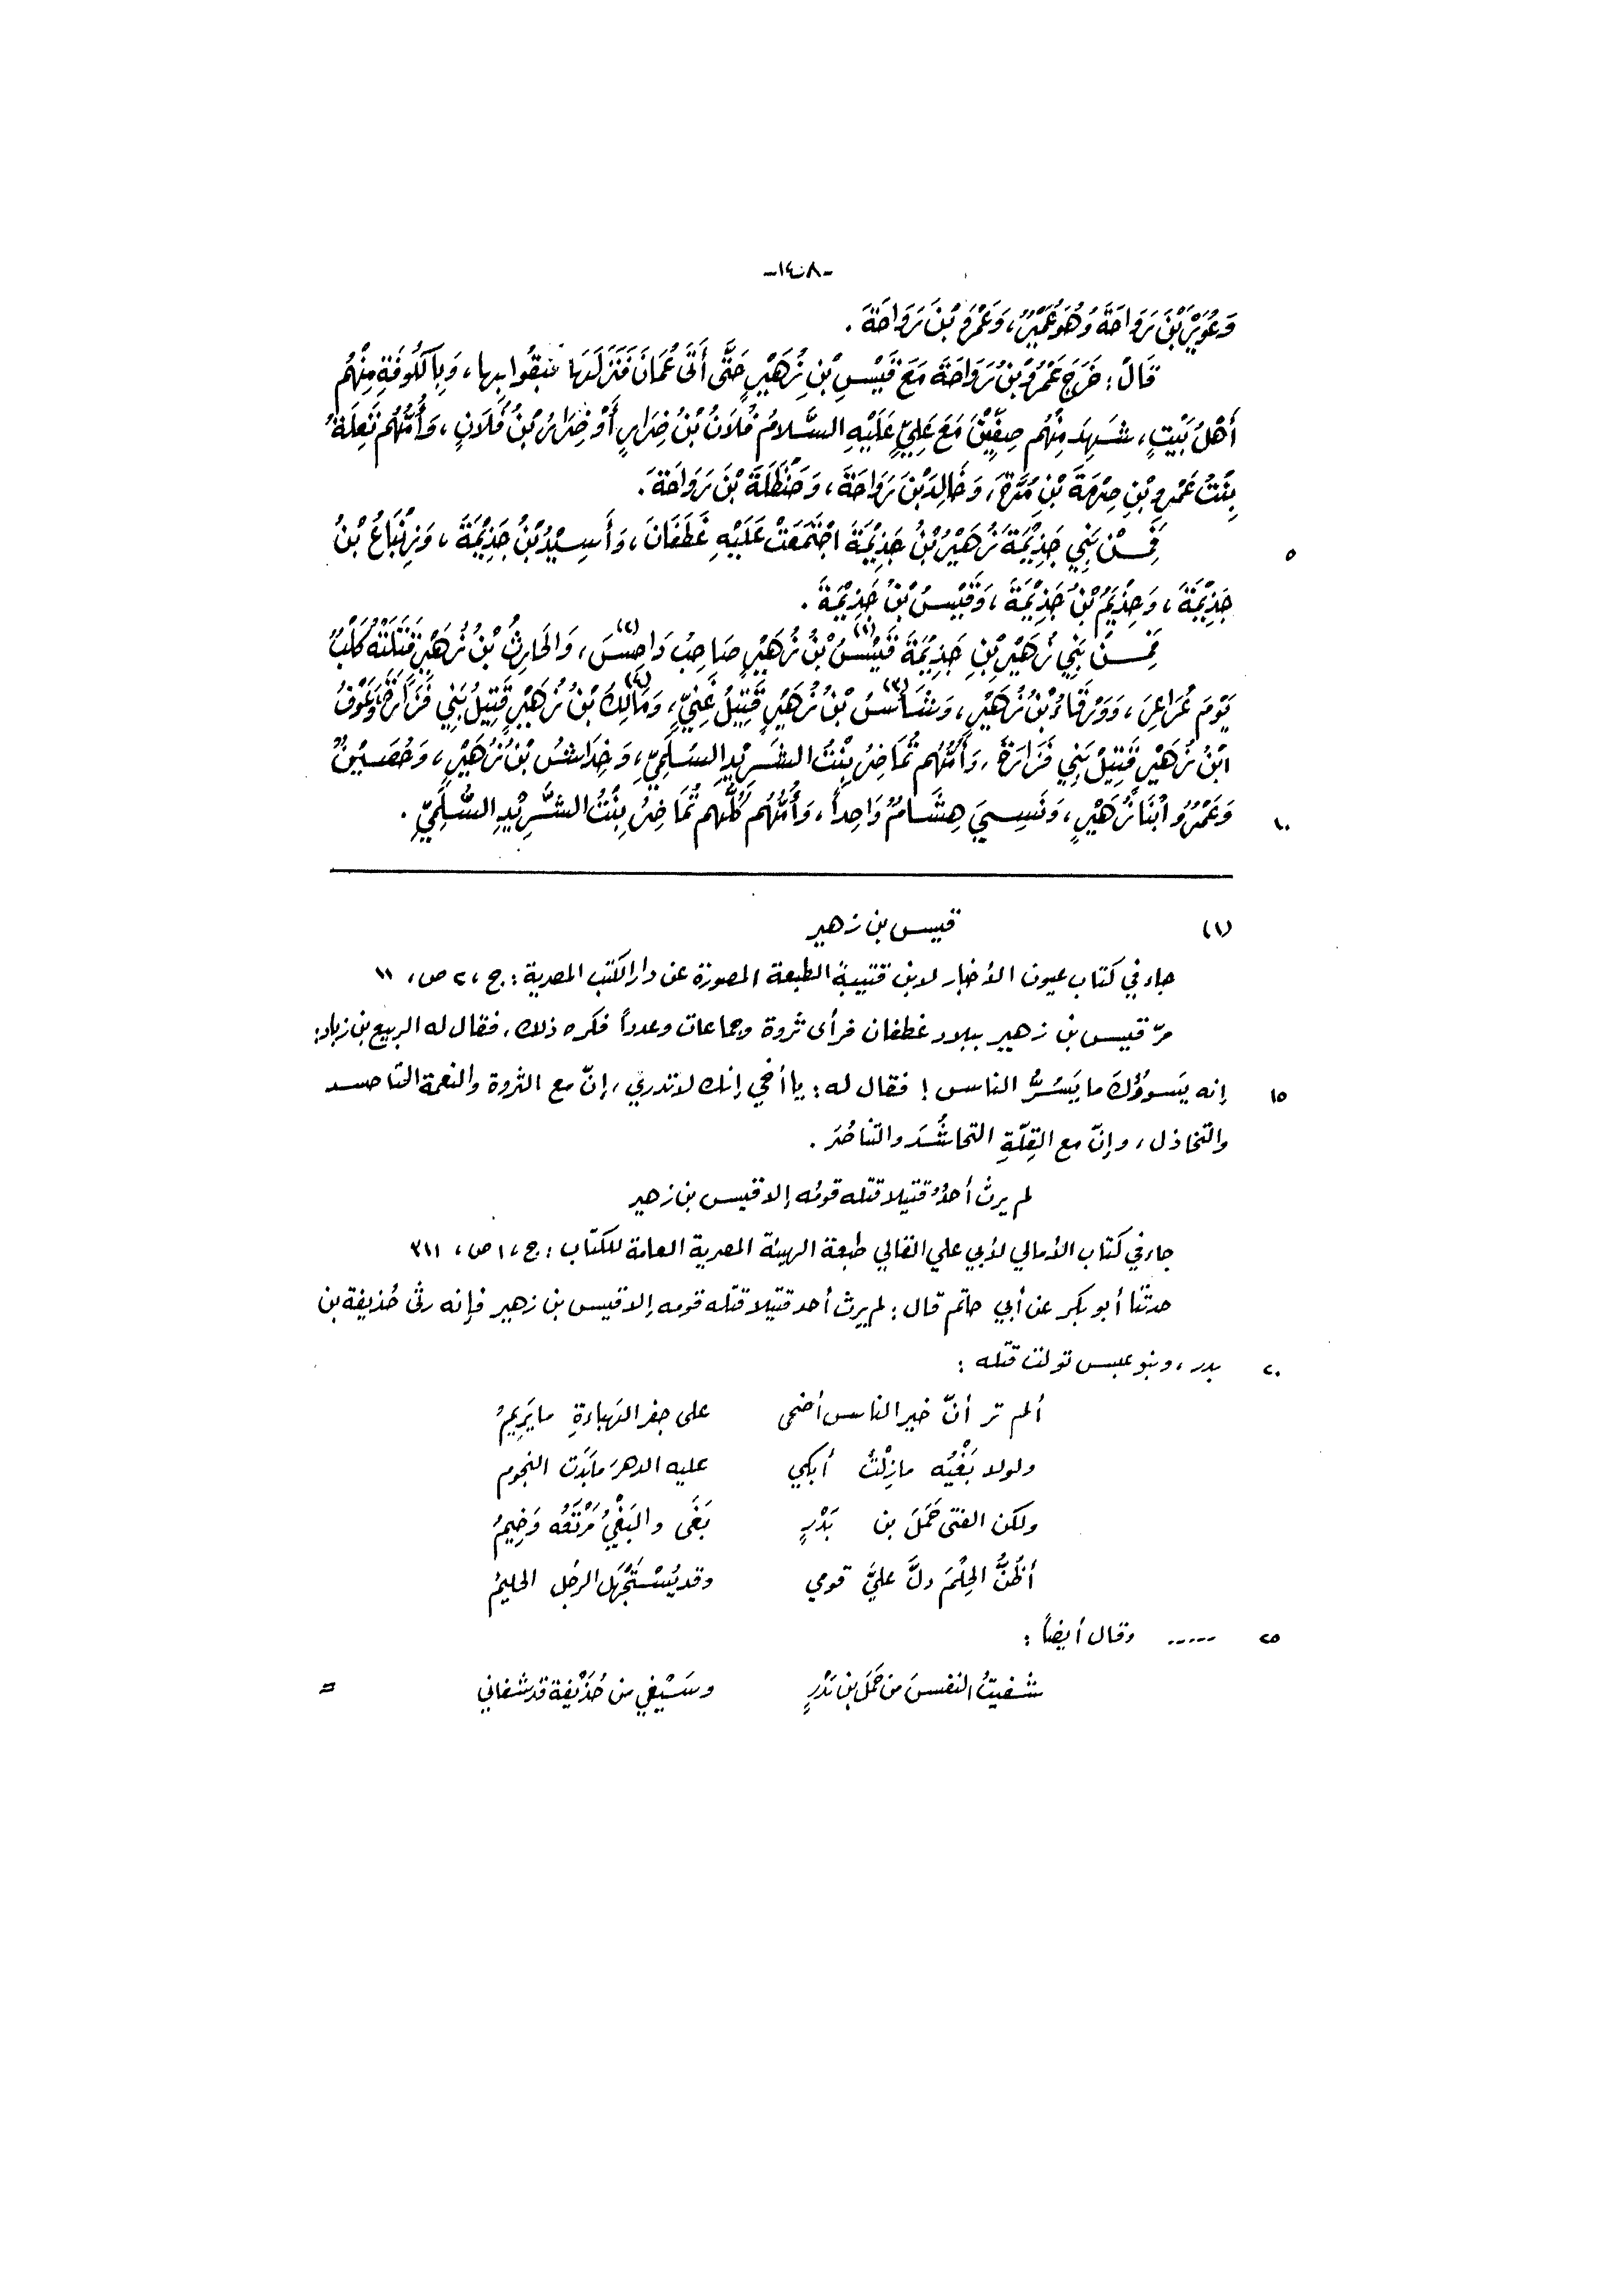 -١٤٠٨-
وَعُوَيْرَ بْنَ رَوَاحَةَ وَهُوَ عُمَيْرٌ، وَعَمْرَو بْنَ رَوَاحَةَ.
قَالَ: خَرَجَ عَمْرُو بْنُ رَوَاحَةَ مَعَ قَيْسِ بْنِ زُهَيْرٍ حَتَّى أَتَى عُمَانَ فَنَزَلَهَا فبقُوا بِها، وَبِالكُوفَةِ مِنْهُم
أَهْلُ بَيْتٍ، شَهِدَ مِنْهُم صِفِّيْنَ مَعَ عَلِيٍّ عَلَيْهِ السَّلامُ فُلَانُ بْنُ ضِرَارٍ أَوْ ضِرَارُ بْنُ فُلَانٍ، وَأُمُّهُم نَعِلَةُ
بِنْتُ عَمْرِو بْنِ صِرْمَةَ بْنِ مُرَّةَ، وَخَالِدَ بْنَ رَوَاحَةَ، وَحَنْظَلَةَ بْنَ رَوَاحَةَ.
٥ فَمِنْ بَنِي جَذِيْمَةَ زُهَيْرُ بْنُ جَذِيْمَةَ اجْتَمَعَتْ عَلَيْهِ غَطَفَانُ، وَأَسِيْدُ بْنُ جَذِيْمَةَ، وَزِنْبَاعُ بْنُ
جَذِيْمَةَ، وَحِذْيَمُ بْنُ جَذِيْمَةَ، وَقَيْسُ بْنُ جَذِيْمَةَ.
فَمِنْ بَنِي زُهَيْرِ بْنِ جَذِيْمَةَ قَيْسُ (١) بْنُ زُهَيْرٍ صَاحِبُ دَاحِسَ (٢)، وَالحَارِثُ بْنُ زُهَيْرٍ قَتَلَتْهُ كَلْبٌ
يَوْمَ عُرَاعِرَ، وَوَرْقَاءُ بْنُ زُهَيْرٍ، وَشَأْسُ (٣) بْنُ زُهَيْرٍ قَتِيْلُ غَنِيٍّ، وَمَالِكُ (٤) بْنُ زُهَيْرٍ قَتِيْلُ بَنِي فَزَارَةَ، وَعَوْفُ
ابْنُ زُهَيْرٍ قَتِيْلُ بَنِي فَزَارَةَ، وَأُمُّهُم تُمَاضِرُ بِنْتُ الشَّرِيْدِ السُّلَمِيِّ، وَخِدَاشُ بْنُ زُهَيْرٍ، وَحُصَيْنٌ
١٠ وَعَمْرٌو ابْنَا زُهَيْرٍ، وَنَسِيَ هِشَامٌ وَاحِداً، وَأُمُّهُم كُلُّهم تُمَاضِرُ بِنْتُ الشَّرِيْدِ السُّلَمِيِّ.
(١) قيس بن زهير
جاء في كتاب عيون الأخبار لابن قتيبة الطبعة المصورة عن دار الكتب المصرية: ج، ٢ ص، ١١
مرّ قيس بن زهير ببلاد غطفان فرأى ثروة وجماعات وعدداً فكره ذلك، فقال له الربيع بن زياد:
١٥ إنه يَسوؤُكَ ما يَسُرُّ الناس! فقال له: يا أخي إنك لا تدري، إنّ مع الثروة والنعمة التحاسد
والتخاذل، وإنّ مع القِلّةِ التحاشُدَ والتناصُرَ.
لم يرثِ أحدٌ قتيلا قتله قومُه إلا قيس بن زهير
جاء في كتاب الأمالي لأبي علي القالي طبعة الهيئة المصرية العامة للكتاب: ج، ١ ص، ٣١١
حدثنا أبو بكر عن أبي حاتم قال: لم يرثِ أحد قتيلا قتله قومه إلا قيس بن زهير فإنه رثى حُذيفة بن
٢٠ بدر، وبنو عبس تولت قتله:
ألم تر أنّ خير الناس أضحى على جفر الهباءةِ ما يَرِيمُ
ولولا بَغْيُه مازِلْتُ أبكي عليه الدهرَ ما بَدَت النجوم
ولكن الفتى حَمَلَ بن بَدْرٍ بَغَى والبَغْيُ مَرْتَعُه وَخِيمُ
أظُنُّ الحِلْمَ دلَّ عليَّ قومي وقد يُسْتَجْهَل الرجل الحليمُ
٢٥ ..... وقال أيضاً:
شفيتُ النفسَ من حَمَلِ بن بَدْرٍ وسَيْفي من حُذَيْفة قد شفاني =